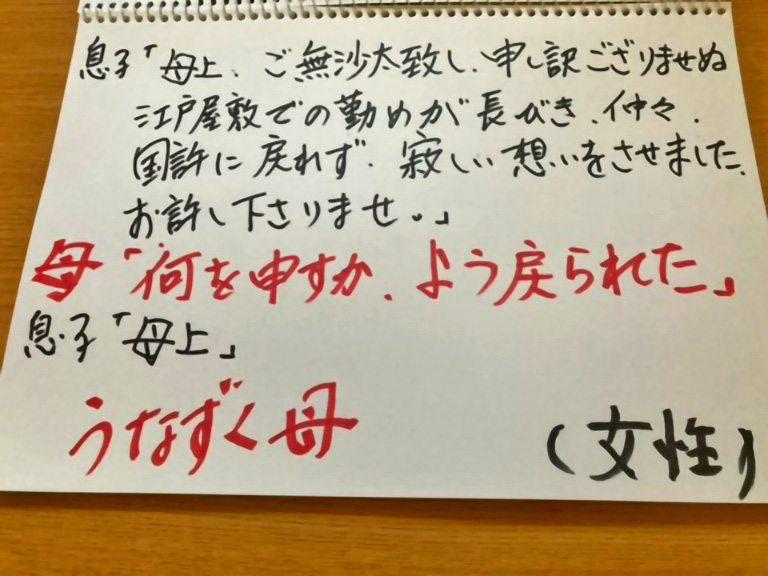 息子「母上、ご無沙太致し、申し訳ござりませぬ
江戸屋敷での勤めが長びき、仲々、
国許に戻れず、寂しい想いをさせました、
お許し下さりませ。」
母「何を申すか、よう戻られた」
息子「母上」
うなずく母
(女性)